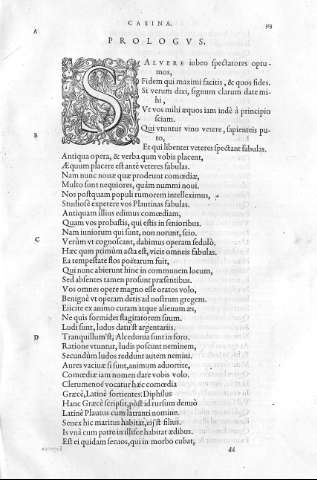 CASINA.
A
PROLOGVS.
SALVERE iubeo spectatores optu-
mos,
Fidem qui maximi facitis, & quos fides.
Si verum dixi, signum clarum date mi-
hi,
Vt vos mihi æquos iam indè à principio
sciam.
Qui vtuntur vino vetere, sapienteis pu-
B
to,
Et qui libenter veteres spectant fabulas.
Antiqua opera, & verba quum vobis placent,
Æquum placere est antè veteres fabulas.
Nam nunc nouæ quæ prodeunt comœdiæ,
Multo sunt nequiores, quàm nummi noui.
Nos postquam populi rumorem intelleximus,
Studiosè expetere vos Plautinas fabulas.
Antiquam illius edimus comœdiam,
Quam vos probastis, qui estis in senioribus.
Nam iuniorum qui sunt, non norunt, scio.
C
Verùm vt cognoscant, dabimus operam sedulò.
Hæc quum primùm acta est, vicit omneis fabulas.
Ea tempestate flos poëtarum fuit,
Qui nunc abierunt hinc in communem locum,
Sed absentes tamen prosunt præsentibus.
Vos omnes opere magno esse oratos volo,
Benignè vt operam detis ad nostrum gregem.
Eiicite ex animo curam atque alienum æs,
Ne quis formidet flagitatorem suum.
Ludi sunt, ludus datus est argentariis.
D
Tranquillum est, Alcedonia sunt in foro.
Ratione vtuntur, ludis poscunt neminem,
Secundùm ludos reddunt autem nemini.
Aures vaciuæ si sunt, animum aduortite,
Comœdiæ iam nomen dare vobis volo.
Clerumenoe vocatur hæc comœdia
Græcè, Latinè sortientes. Diphilus
Hanc Græcè scripsit, pòst id rursum denuò
Latinè Plautus cum latranti nomine.
Senex hic maritus habitat, ei est filius.
Is vnà cum patre in illisce habitat ædibus.
Est ei quidam seruos, qui in morbo cubat,
dd